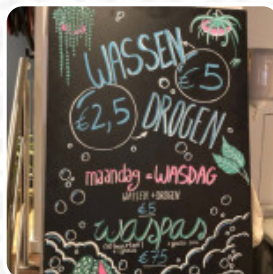 WASSEN
€5
€2,5
DROGEN
maandag = WASDAG
WASSEN + DROGEN
€5
waspas
€75